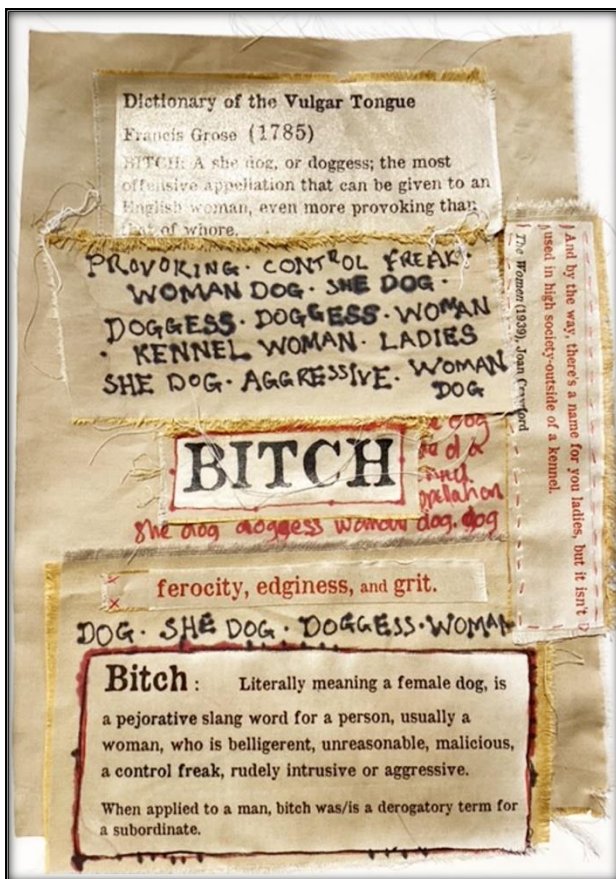 Dictionary of the Vulgar Tongue
Francis Grose (1785)
BITCH: A she dog, or doggess; the most
offensive appellation that can be given to an
English woman, even more provoking than
that of whore.
PROVOKING · CONTROL FREAK ·
WOMAN DOG · SHE DOG ·
DOGGESS · DOGGESS · WOMAN
· KENNEL WOMAN · LADIES
SHE DOG · AGGRESSIVE · WOMAN
DOG
And by the way, there's a name for you ladies, but it isn't
used in high society-outside of a kennel.
The Women (1939), Joan Crawford
BITCH
dog
she dog doggess woman dog. dog
ferocity, edginess, and grit.
DOG · SHE DOG · DOGGESS · WOMAN
Bitch : Literally meaning a female dog, is
a pejorative slang word for a person, usually a
woman, who is belligerent, unreasonable, malicious,
a control freak, rudely intrusive or aggressive.
When applied to a man, bitch was/is a derogatory term for
a subordinate.